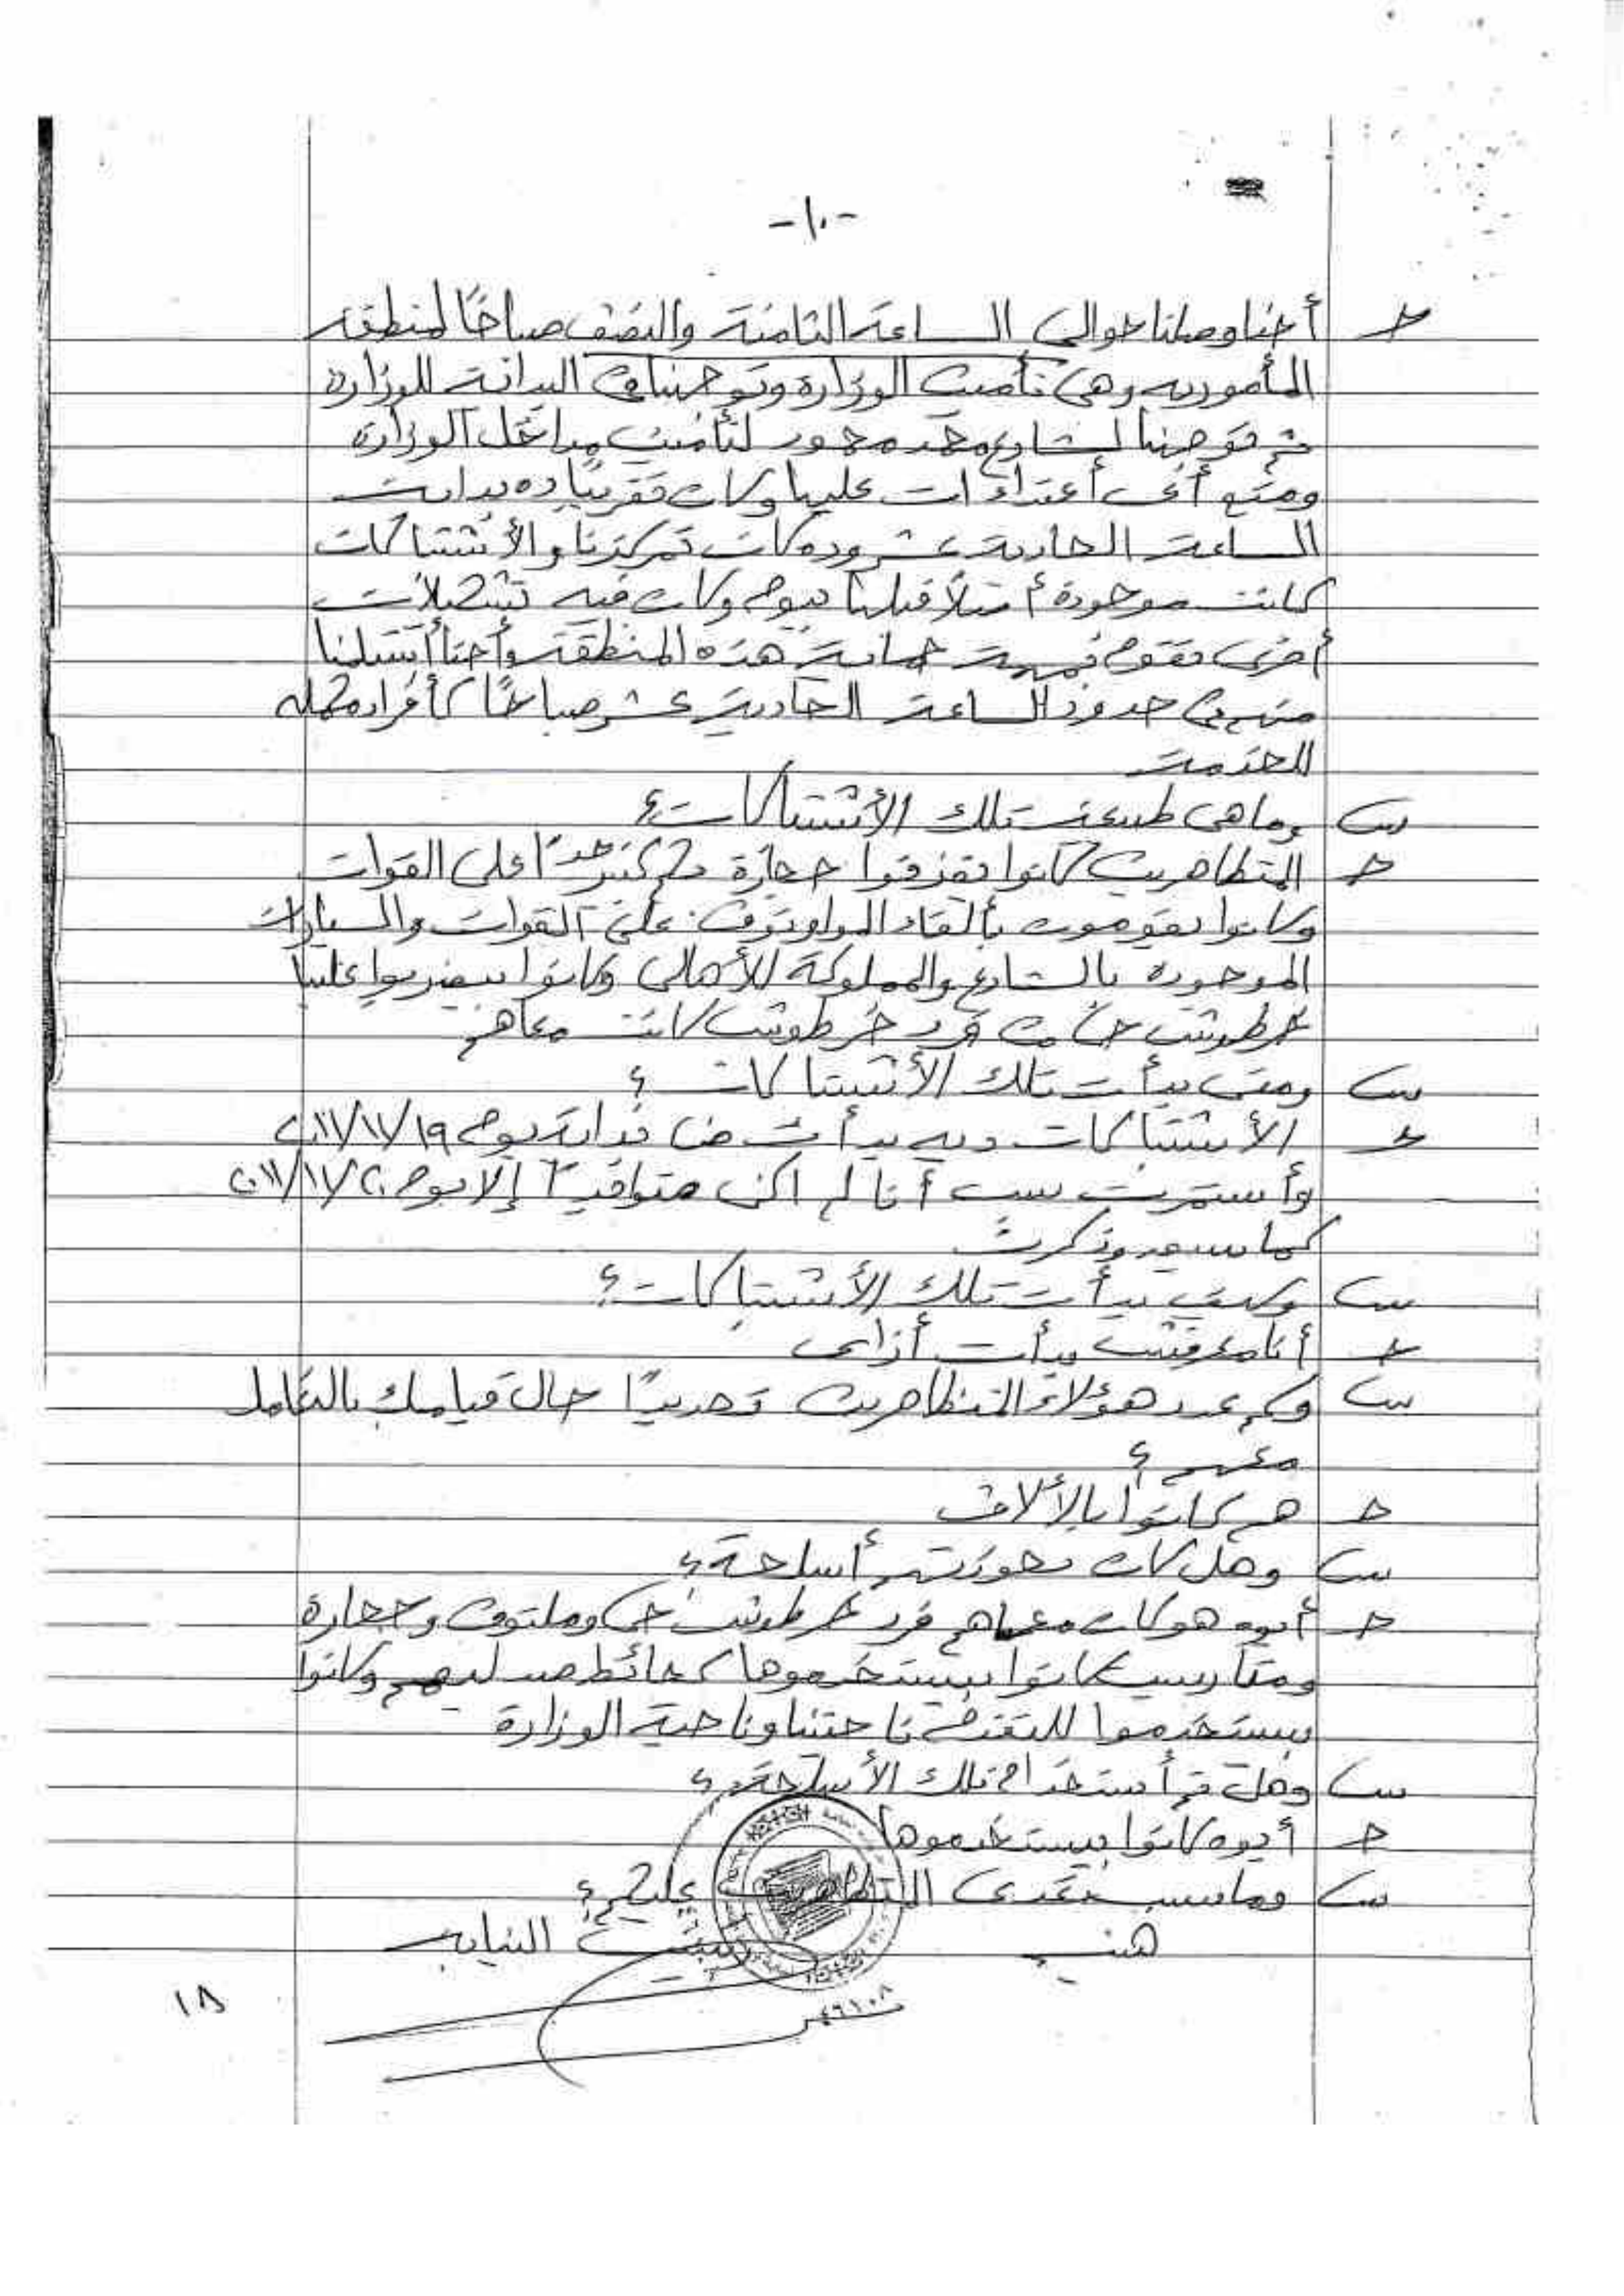 -١٠-
ج أحنا وصلنا حوالى الساعة الثامنة والنصف صباحًا لمنطقة
المأمورية وهى تأمين الوزارة وتوجهنا فى البداية للوزارة
ثم توجهنا لشارع محمد محمود لتأمين مداخل الوزارة
ومنع أى أعتداءات عليها وكان تقريبًا ده بداية
الساعة الحادية عشر وده كان تمركزنا والأشتباكات
كانت موجودة أصلاً قبلها بيوم وكان فيه تشكيلات
أخرى تقوم بمهمة حماية هذه المنطقة وأحنا أستلمنا
منهم فى حدود الساعة الحادية عشر صباحًا كأفراد مكمله
للخدمة
س وما هى طبيعة تلك الأشتباكات؟
ج المتظاهرين كانوا بقذفوا حجارة كتير جدًا على القوات
وكانوا يقوموت بألقاء المولوتوف على القوات والسيارات
الموجودة بالشارع والمملوكة للأهالى وكانوا بيضربوا علينا
خرطوش حى من فرد خرطوش كانت معاهم
س ومتى بدأت تلك الأشتباكات؟
ج الأشتباكات ديه بدأت من بداية يوم ٢٠١١/١١/١٩
وأستمرت بس أنا لم اكن متواجدًا إلا يوم ٢٠١١/١١/٢٠
كما سبق وذكرت
س وكيف بدأت تلك الأشتباكات؟
ج أنا معرفش بدأت أزاى
س وكم عدد هؤلاء المتظاهرين تحديدًا حال قيامك بالتعامل
معهم؟
ج هم كانوا بالألاف
س وهل كان بحوزتهم أسلحة؟
ج أيوه هو كان معاهم فرد خرطوش حى وملتوف وحجارة
ومتاريس كانوا بيستخدموها كحائط صد ليهم وكانوا
بيستخدموا للتقدم ناحتنا وناحية الوزارة
س وهل تم أستخدام تلك الأسلحة؟
ج أيوه كانوا بيستخدموها
س وما سبب تعدى المتظاهرين عليكم؟
النيابه
١٨